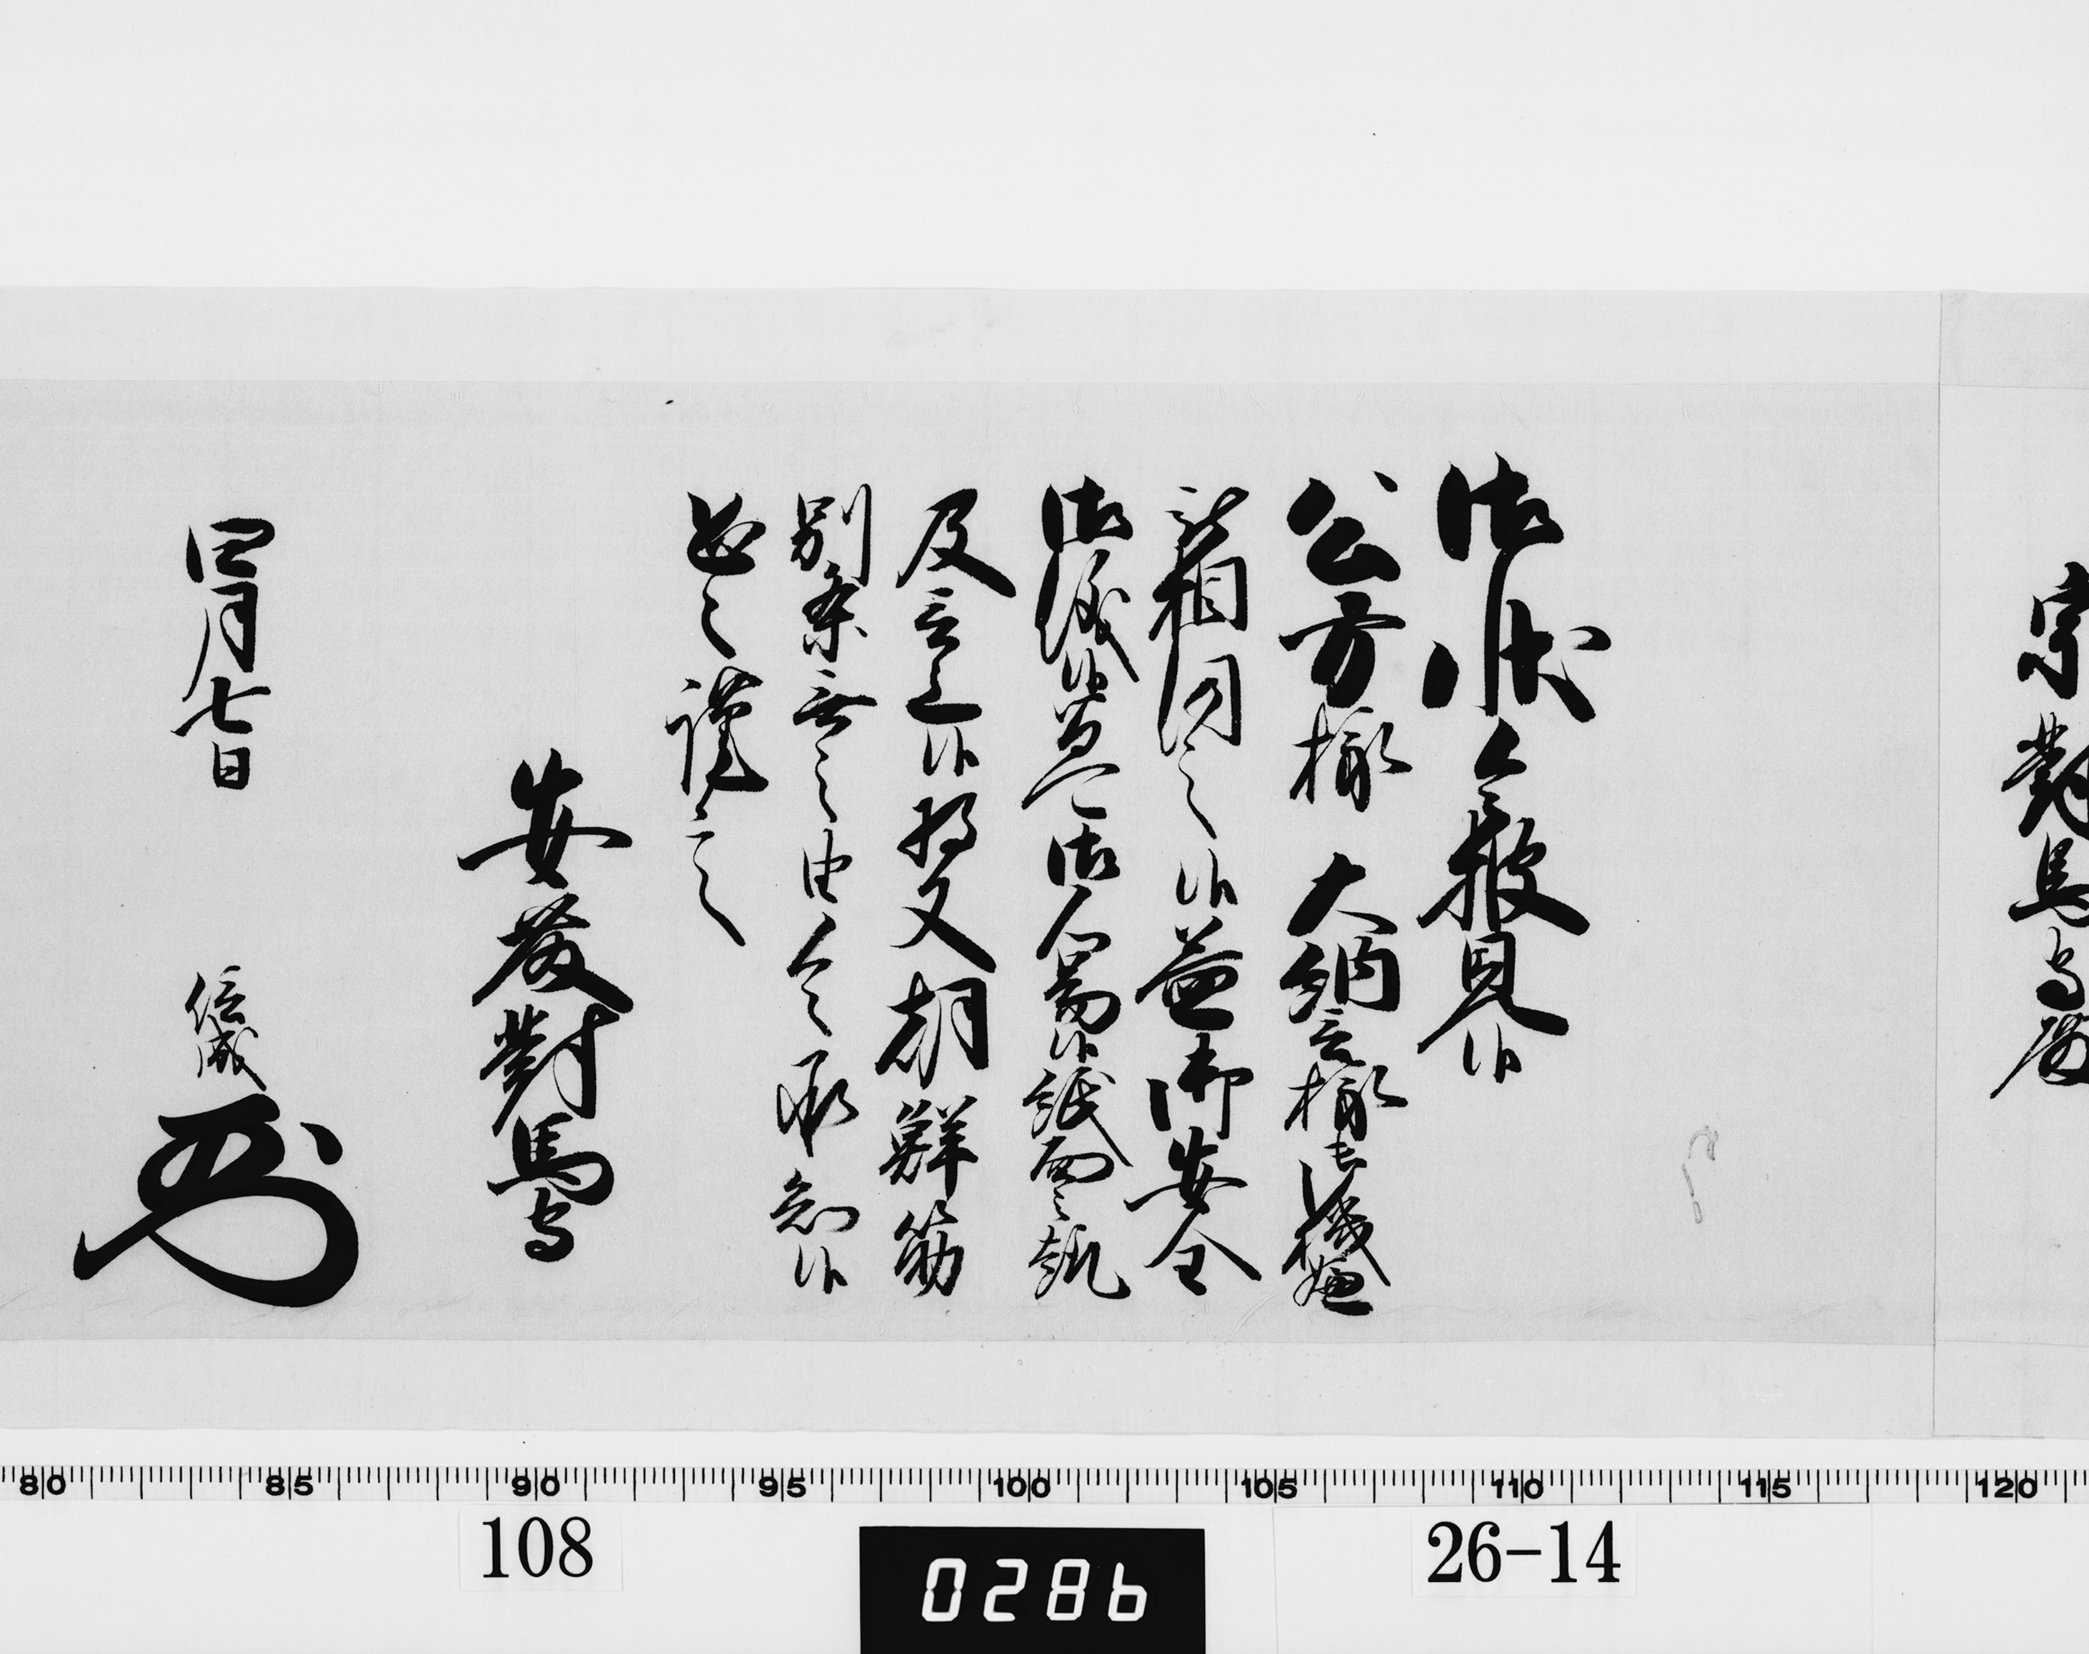 宗對馬守殿
御状令披見候
公方様大納言様御機嫌
被相伺之候益御安全
御儀候
及言上候将又朝鮮筋
別条無之由令承知候
恐々謹言
安藤對馬守
四月七日 信成
80 85 90 95 100 105 110 115 120
108 0286 26-14